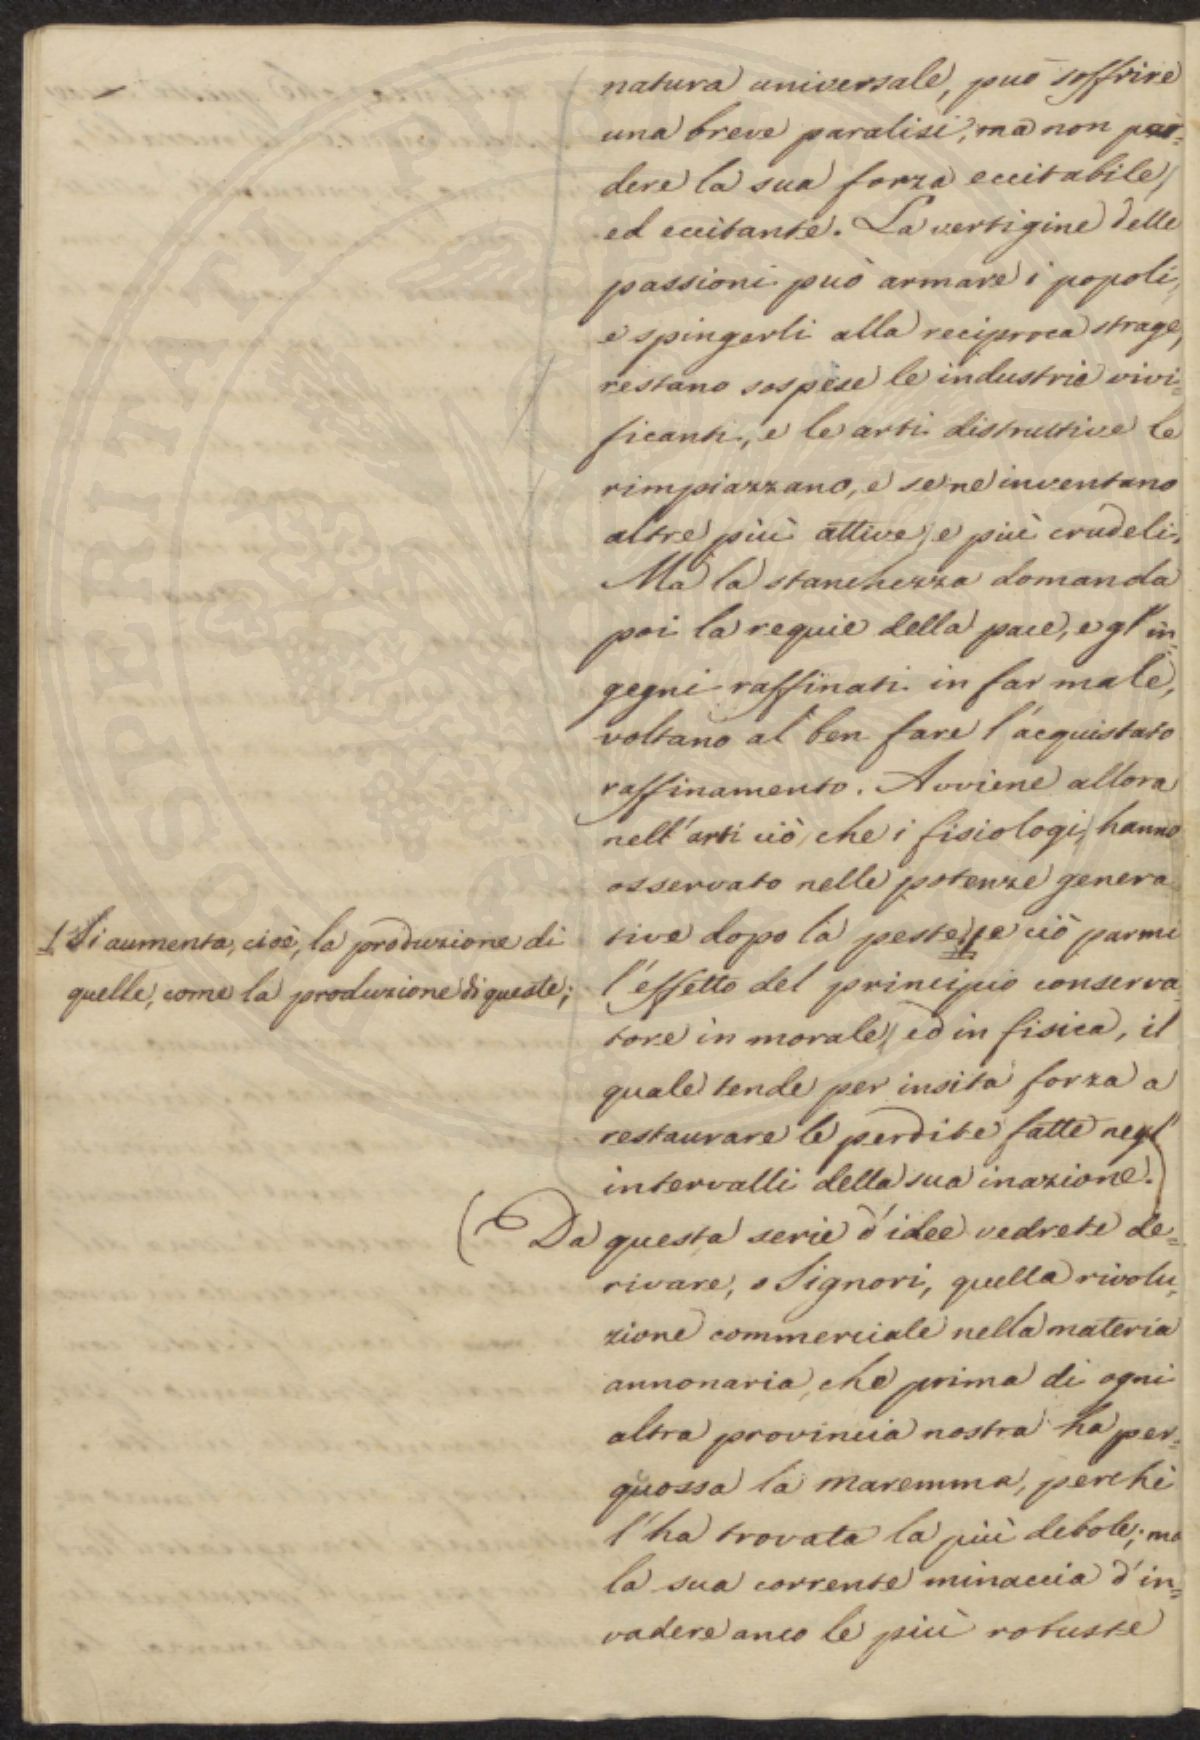 natura universale, può soffrire
una breve paralisi, ma non per-
dere la sua forza eccitabile,
ed eccitante. La vertigine delle
passioni può armare i popoli,
e spingerli alla reciproca strage,
restano sospese le industrie vivi=
ficanti, e le arti distruttive le
rimpiazzano, e se ne inventano
altre più attive, e più crudeli.
Ma la stanchezza domanda
poi la requie della pace, e gl'in=
gegni raffinati in far male,
voltano al ben fare l'acquistato
raffinamento. Avviene allora
nell'arti ciò, che i fisiologi, hanno
osservato nelle potenze genera
tive dopo la peste; e ciò parmi
1 Si aumenta, cioè, la produzione di
quelle, come la produzione di queste;
l'effetto del principio conserva=
tore in morale, ed in fisica, il
quale tende per insita forza a
restaurare le perdite fatte negl'
intervalli della sua inazione.
(Da questa serie d'idee vedrete de=
rivare, o Signori, quella rivolu=
zione commerciale nella materia
annonaria, che prima di ogni
altra provincia nostra ha per=
quossa la maremma, perchè
l'ha trovata la più debole; ma
la sua corrente minaccia d'in=
vadere anco le più robuste
PROSPERITATI PUBLICAE